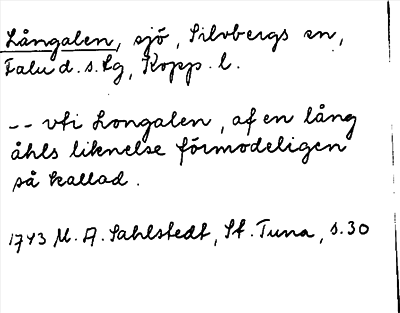 Långalen, sjö, Silvbergs sn,
Falu d. s. lg, Kopp. l.
-- uti Longalen, af en lång
åhls liknelse förmodeligen
så kallad.
1743 M. A. Sahlstedt, St. Tuna, s. 30